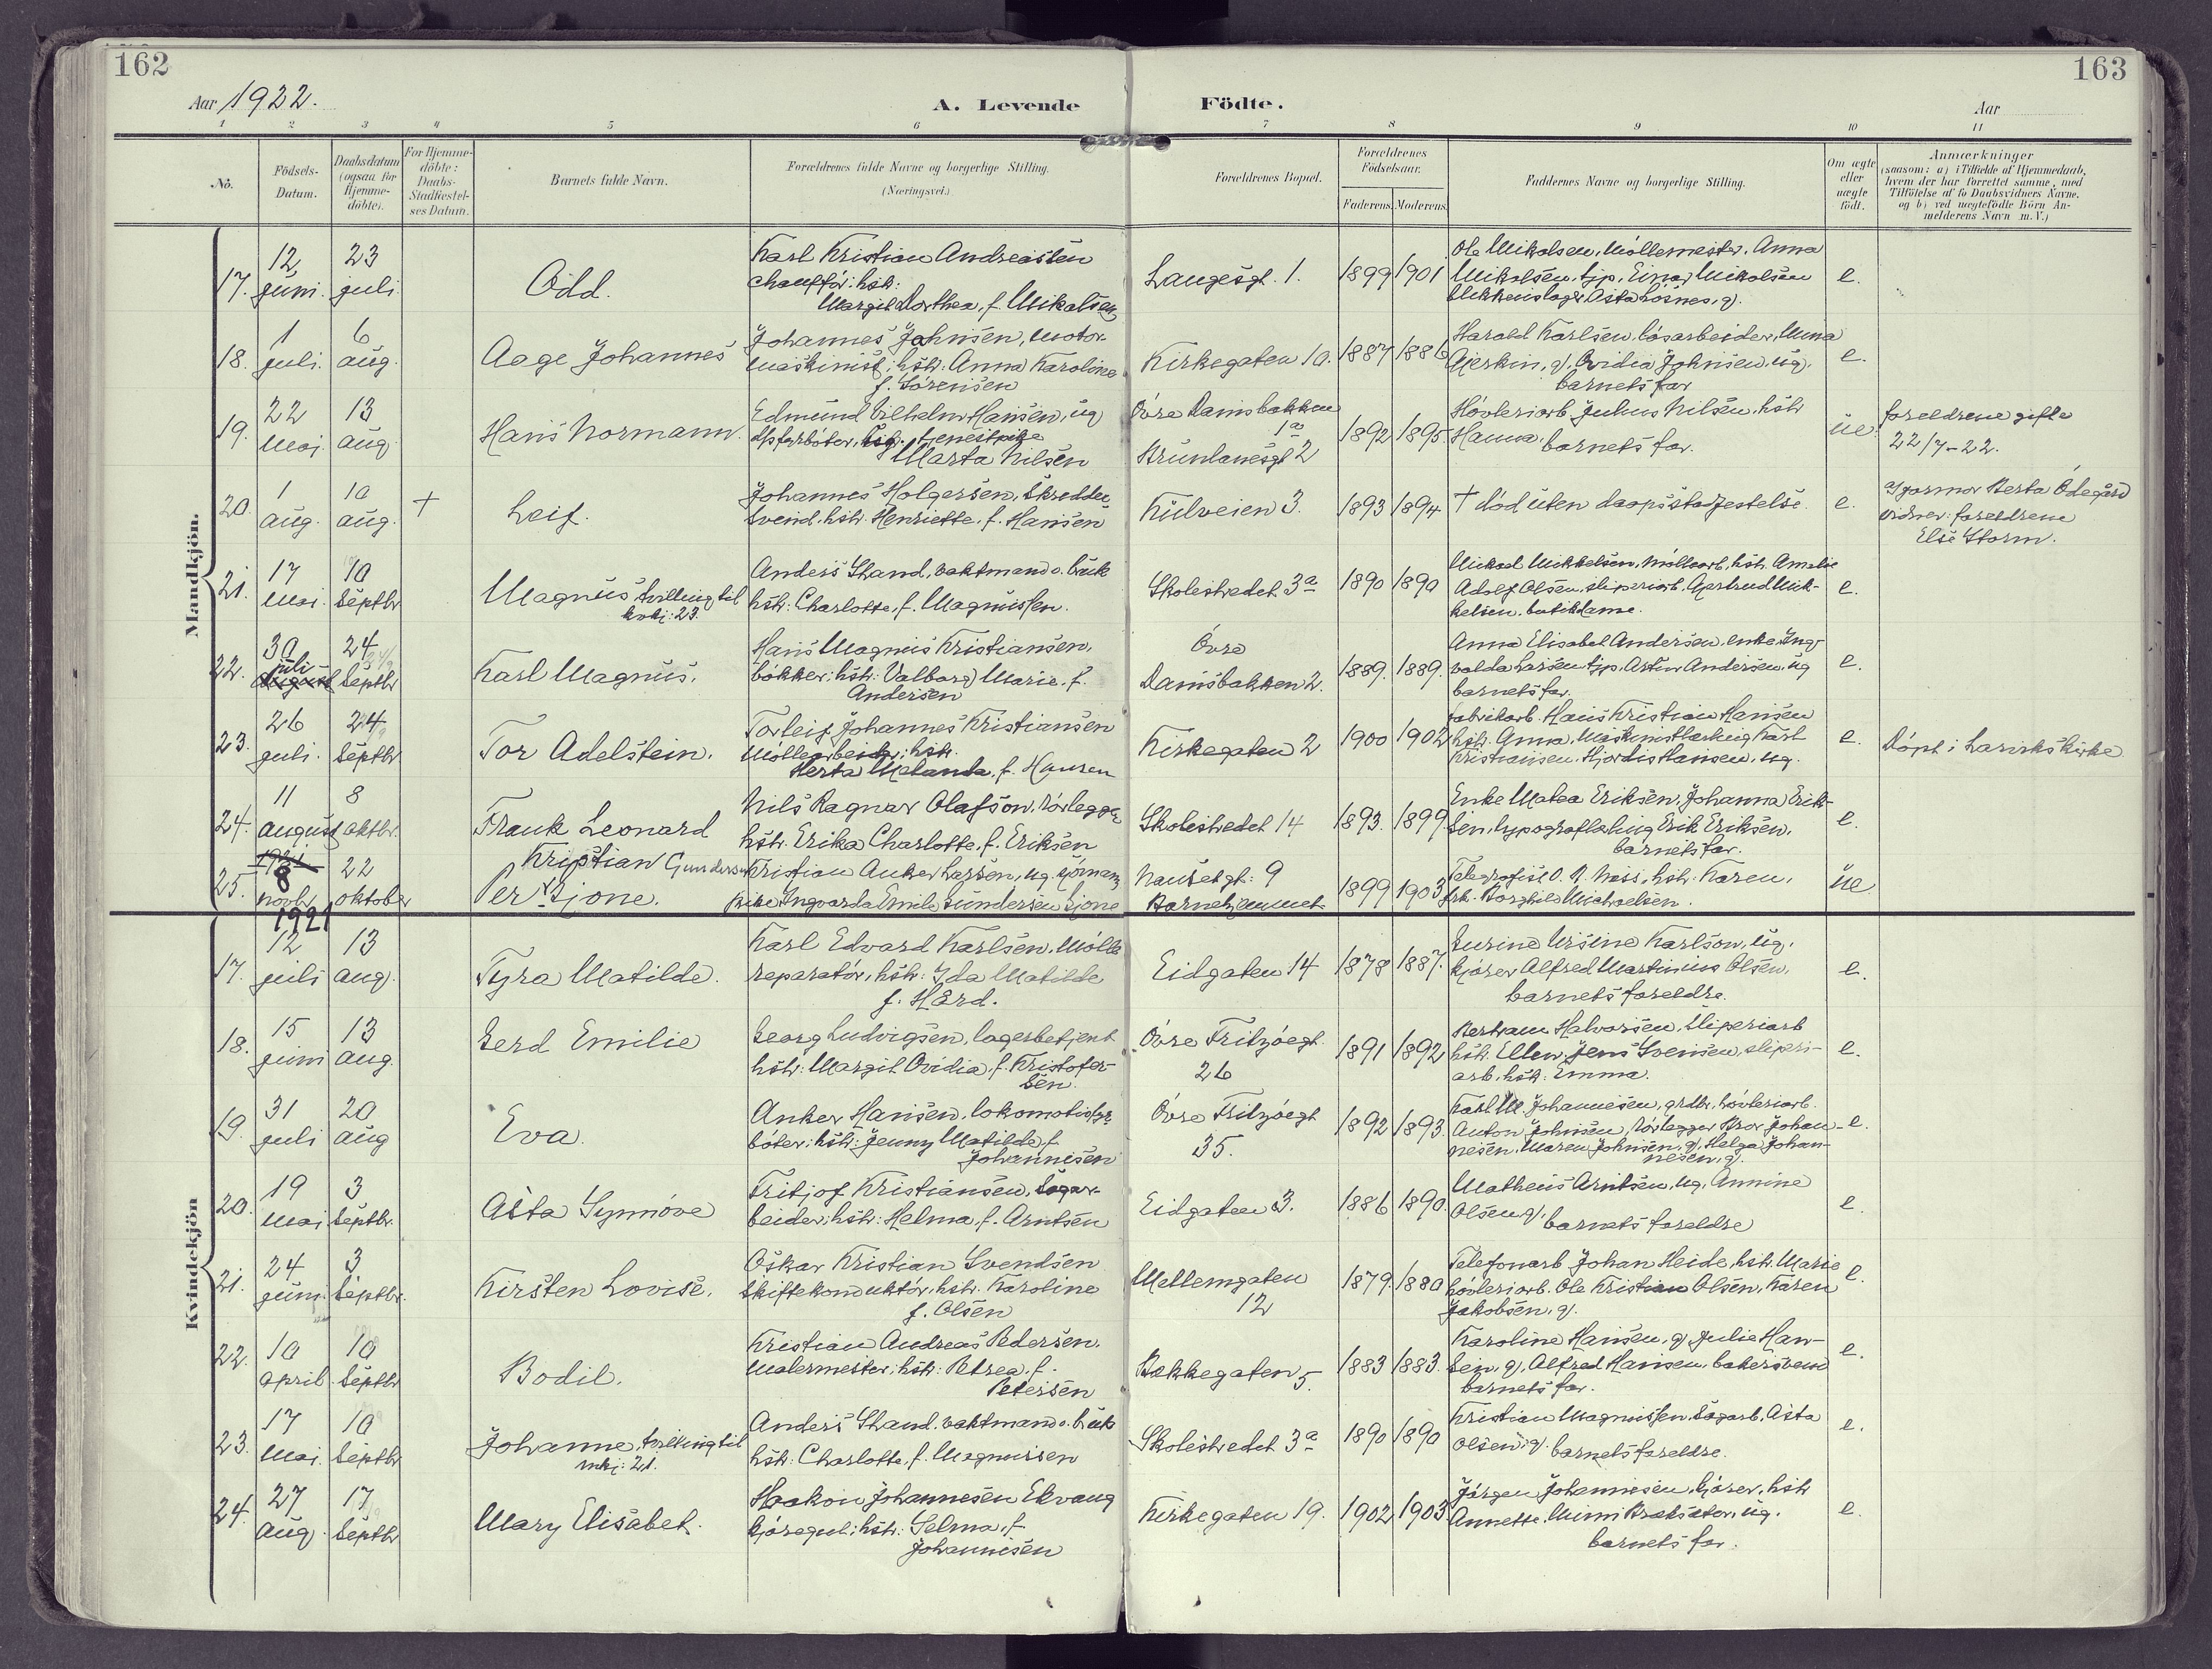 162
163
Aar 1922.
A. Levende
Födte.
Aar
1 2 3 4 5 6 7 8 9 10 11
No.
Födsels-
Datum.
Daabsdatum
(ogsaa for
Hjemme-
döbte).
For Hjemme-
döbte:
Daabs-
Stadfæstel-
ses Datum.
Barnets fulde Navn.
Forældrenes fulde Navne og borgerlige Stilling.
(Næringsvei.)
Forældrenes Bopæl.
Forældrenes
Födselsaar.
Faderens. Moderens.
Faddernes Navne og borgerlige Stilling.
Om ægte
eller
uægte
födt.
Anmærkninger
(saasom: a) i Tilfælde af Hjemmedaab,
hvem der har forrettet samme, med
Tilföielse af to Daabsvidners Navne.
og b) ved uægtefödte Börn An-
melderens Navn m.V.)
Mandkjön.
17. 12 juni. 23 juli
Odd.
Karl Kristian Andreassen
chauffór: hstr:
Margit Dorthea, f. Mikalsen
Langesgt. 1. 1899 1901
Ole Mikalsen, Möllemester, Anna
Mikalsen, tjp. Einar Mikalsen
blikkenslager, Asta Lösnes, g.
e.
18. 1 juli. 6 aug.
Aage Johannes
Johannes Johnsen, motor-
maskinist; hstr: Anna Karoline
f. Sörensen
Kirkegaten 10. 1887 1886
Harald Karlsen, lösarbeider, Mina
Gjerkin, g. Ovidia Johnsen, ug.
barnets far
e.
19. 22 Mai. 13 aug.
Hans Normann.
Edmund Vilhelm Hansen, ug
Marta Nilsen
Övre Damsbakken
1a
Brunlanesgt 2
1892 1895
Hövleriarb. Julius Nilsen, hstr
Hanna, barnets far.
ue.
foreldrene gifte
22/7-22.
20. 1 aug. 10 aug. +
Leif.
Johannes Holgersen, Skredder
Svend, hstr. Henriette, f. Hansen
Kulveien 3. 1893 1894
† död uten daapsstadfestelse.
e.
Jormor Berta Ödegård
vidner: foreldrene
Else Storm.
21. 17 Mai. 10 Septbr
Magnus, tvilling til
kvkj: 23.
Anders Strand, vaktmand o. bruk
hstr: Charlotte, f. Magnussen.
Skolestredet 3a 1890 1890
Mikael Mikkelsen, möllearb, hstr. Amalie
Adolf Olsen, sliperiarb. Gjertrud Mik-
kelsen, butikdame.
e.
22. 30 juli august 24 Septbr
Karl Magnus.
Hans Magnus Kristiansen,
bökker; hstr: Valborg Marie, f.
Andersen
Övre
Damsbakken 2. 1889. 1889.
Anna Elisabet Andersen, enke, Ing-
valda Larsen tjp. Artur Andersen, ug
barnets far.
e.
23. 26 juli. 24 Septbr
Tor Adelstein.
Torleif Johannes Kristiansen
Möllearbeider; hstr.
Herta Melanda, f. Hansen
Kirkegaten 2 1900 1902
fabrikarb. Hans Kristian Hansen
hstr. Anna, Maskinistlærling Karl
Kristiansen, Hjördis Hansen, ug.
e.
Döpt i Larviks kirke
24. 11 august 8 oktbr.
Frank Leonard
Nils Ragnar Olafson, rörlegger
hstr. Erika Charlotte, f. Eriksen
Skolestredet 14 1893. 1899
Enke Matea Eriksen, Johanna Erik-
sen, typograflærling Erik Eriksen,
barnets far.
e.
25. 1921 8 novbr 1921 22 oktober
Kristian Gundersen
Per Sjone.
Kristian Anker Larsen, ug. sjömann,
pike Ingvarda Emilie Gundersen Sjone
Nansetgt: 9
Barnehjemmet. 1899 1903
Telegrafist O. A. Næss, hstr. Karen,
frk. Borghild Michaelsen.
ue
Kvindekjön
17. 12 juli 13 aug.
Tyra Matilde.
Karl Edvard Karlsen, Mölle
reparatör, hstr: Ida Matilde
f. Hård.
Eidgaten 14 1878 1887.
Gurine Ursine Karlson, ug.
kjörer Alfred Martinius Olsen,
barnets foreldre.
e.
18. 15 juni 13 aug.
Gerd Emilie
Georg Ludvigsen, lagerbetjent
hstr: Margit Ovidia, f. Kristofer-
sen.
Övre Fritzöegt.
26 1891 1892
Bertram Halvorsen, sliperiarb
hstr. Ellen, Jens Svensen, sliperi-
arb, hstr: Emma.
e.
19. 31 juli 20 aug
Eva.
Anker Hansen, lokomotivfyr
böter; hstr: Jenny Matilde, f.
Johannesen
Övre Fritzöegt
35. 1892 1893.
Karl M. Johannesen, grdbr, hövleriarb.
Anton Johnsen, rörlegger Bror Johan-
nesen, Maren Johnsen, g. Helga Johan-
nesen, g.
e.
20. 19 Mai 3 Septbr.
Asta Synnöve
Fritjof Kristiansen, Sagar-
beider; hstr: Helma, f. Arntsen
Eidgaten 3. 1886 1890.
Matheus Arntsen, ug, Annine
Olsen g, barnets foreldre
e.
21. 24 juni. 3 Septbr.
Kirsten Lovise.
Oskar Kristian Svendsen
Skiftekonduktör, hstr. Karoline
f. Olsen
Mellemgaten
12 1879. 1880
Telefonarb Johan Heide, hstr. Marie
hövleriarb. Ole Kristian Olsen, Karen
Jakobsen, g.
e.
22. 10 april. 10 Septbr
Bodil.
Kristian Andreas Pedersen.
Malermester; hstr: Petrea, f.
Petersen
Bækkegaten 5. 1883 1883.
Karoline Hansen, g, Julie Han-
sen, g, Alfred Hansen, bakersvend
barnets far.
e.
23. 17 Mai. 10 Septbr
Johanne, tvilling til
mkj: 21.
Anders Strand, vaktmand o. bruk
hstr: Charlotte, f. Magnussen
Skolestredet 3a 1890 1890
Kristian Magnussen, Sagarb, Asta
Olsen, g. barnets foreldre.
e.
24. 27 aug. 17 Septbr
Mary Elisabet.
Haakon Johannesen Ekvang
kjöregut; hstr: Selma, f.
Johannesen
Kirkegaten 19. 1902 1903
Jörgen Johannesen, kjörer, hstr
Annette, Mimi ug.
barnets far.
e.